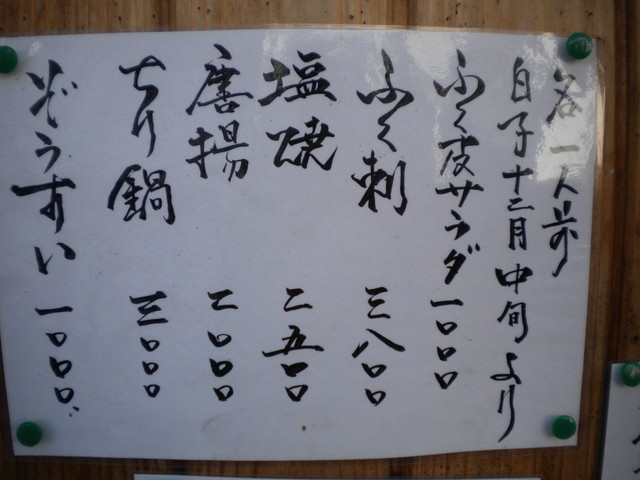 各一人前
白子十二月中旬より
ふく皮サラダ一〇〇〇
ふく刺 三八〇〇
塩焼 二五〇〇
唐揚 二〇〇〇
ちり鍋 三〇〇〇
ぞうすい 一〇〇〇、